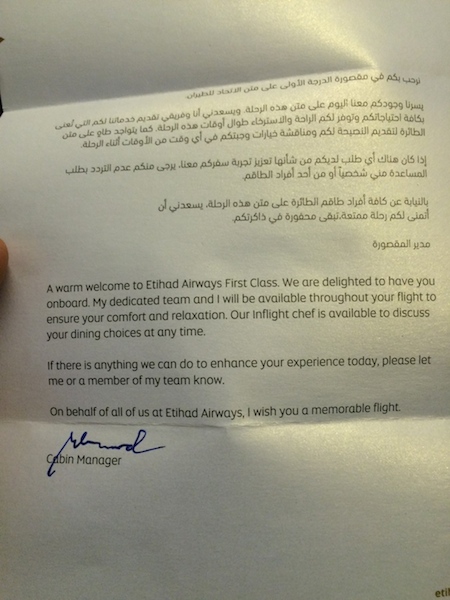 نرحب بكم في مقصورة الدرجة الأولى على متن الاتحاد للطيران.
يسرنا وجودكم معنا اليوم على متن هذه الرحلة. ويسعدني أنا وفريقي تقديم خدماتنا لكم التي تُعنى
بكافة احتياجاتكم وتوفر لكم الراحة والاسترخاء طوال أوقات هذه الرحلة. كما يتواجد طاهٍ على متن
الطائرة لتقديم النصيحة لكم ومناقشة خيارات وجبتكم في أي وقت من الأوقات أثناء الرحلة.
إذا كان هناك أي طلب لديكم من شأنها تعزيز تجربة سفركم معنا، يرجى منكم عدم التردد بطلب
المساعدة مني شخصياً أو من أحد أفراد الطاقم.
بالنيابة عن كافة أفراد طاقم الطائرة على متن هذه الرحلة، يسعدني أن
أتمنى لكم رحلة ممتعة،تبقى محفورة في ذاكرتكم.
مدير المقصورة
A warm welcome to Etihad Airways First Class. We are delighted to have you
onboard. My dedicated team and I will be available throughout your flight to
ensure your comfort and relaxation. Our Inflight chef is available to discuss
your dining choices at any time.
If there is anything we can do to enhance your experience today, please let
me or a member of my team know.
On behalf of all of us at Etihad Airways, I wish you a memorable flight.
Cabin Manager